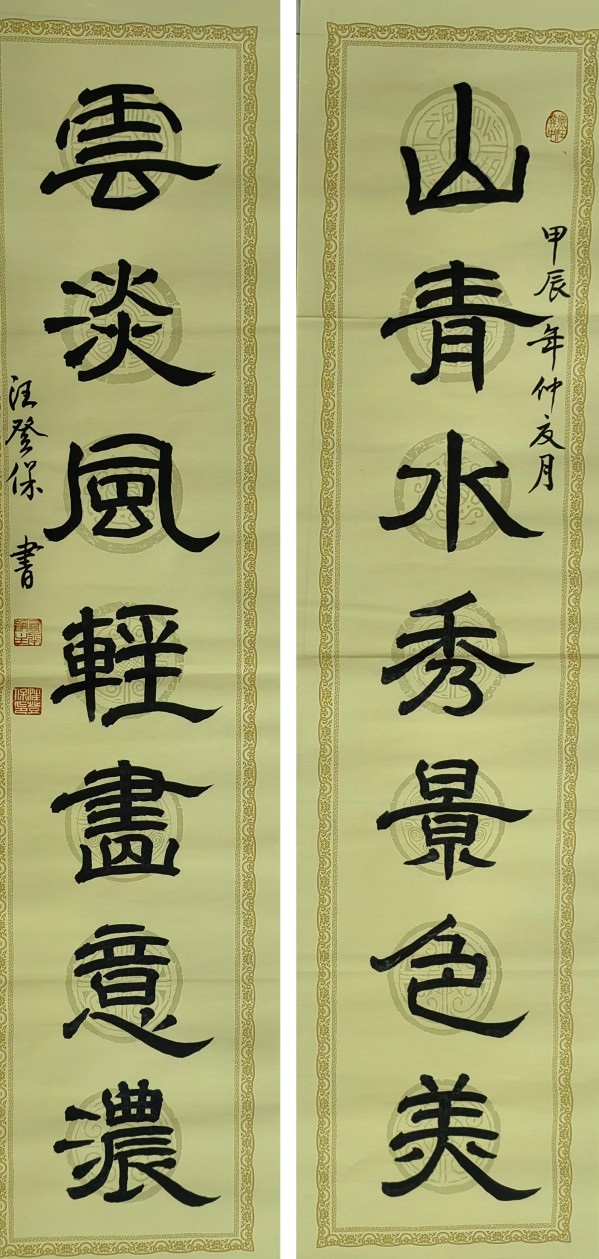 山青水秀景色美
甲辰年仲夏月
雲淡風輕畫意濃
汪登保 書
汪登保印